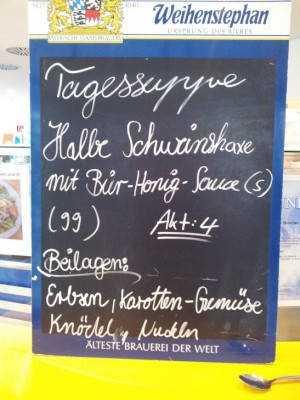 SEIT 1040
Weihenstephan
BAYERISCHE STAATSBRAUEREI
URSPRUNG DES BIERES
Tagessuppe
Halbe Schweinshaxe
mit Bier-Honig-Sauce (s)
(99) Akt: 4
Beilagen:
Erbsen, Karotten-Gemüse
Knödel, Nudeln
ÄLTESTE BRAUEREI DER WELT